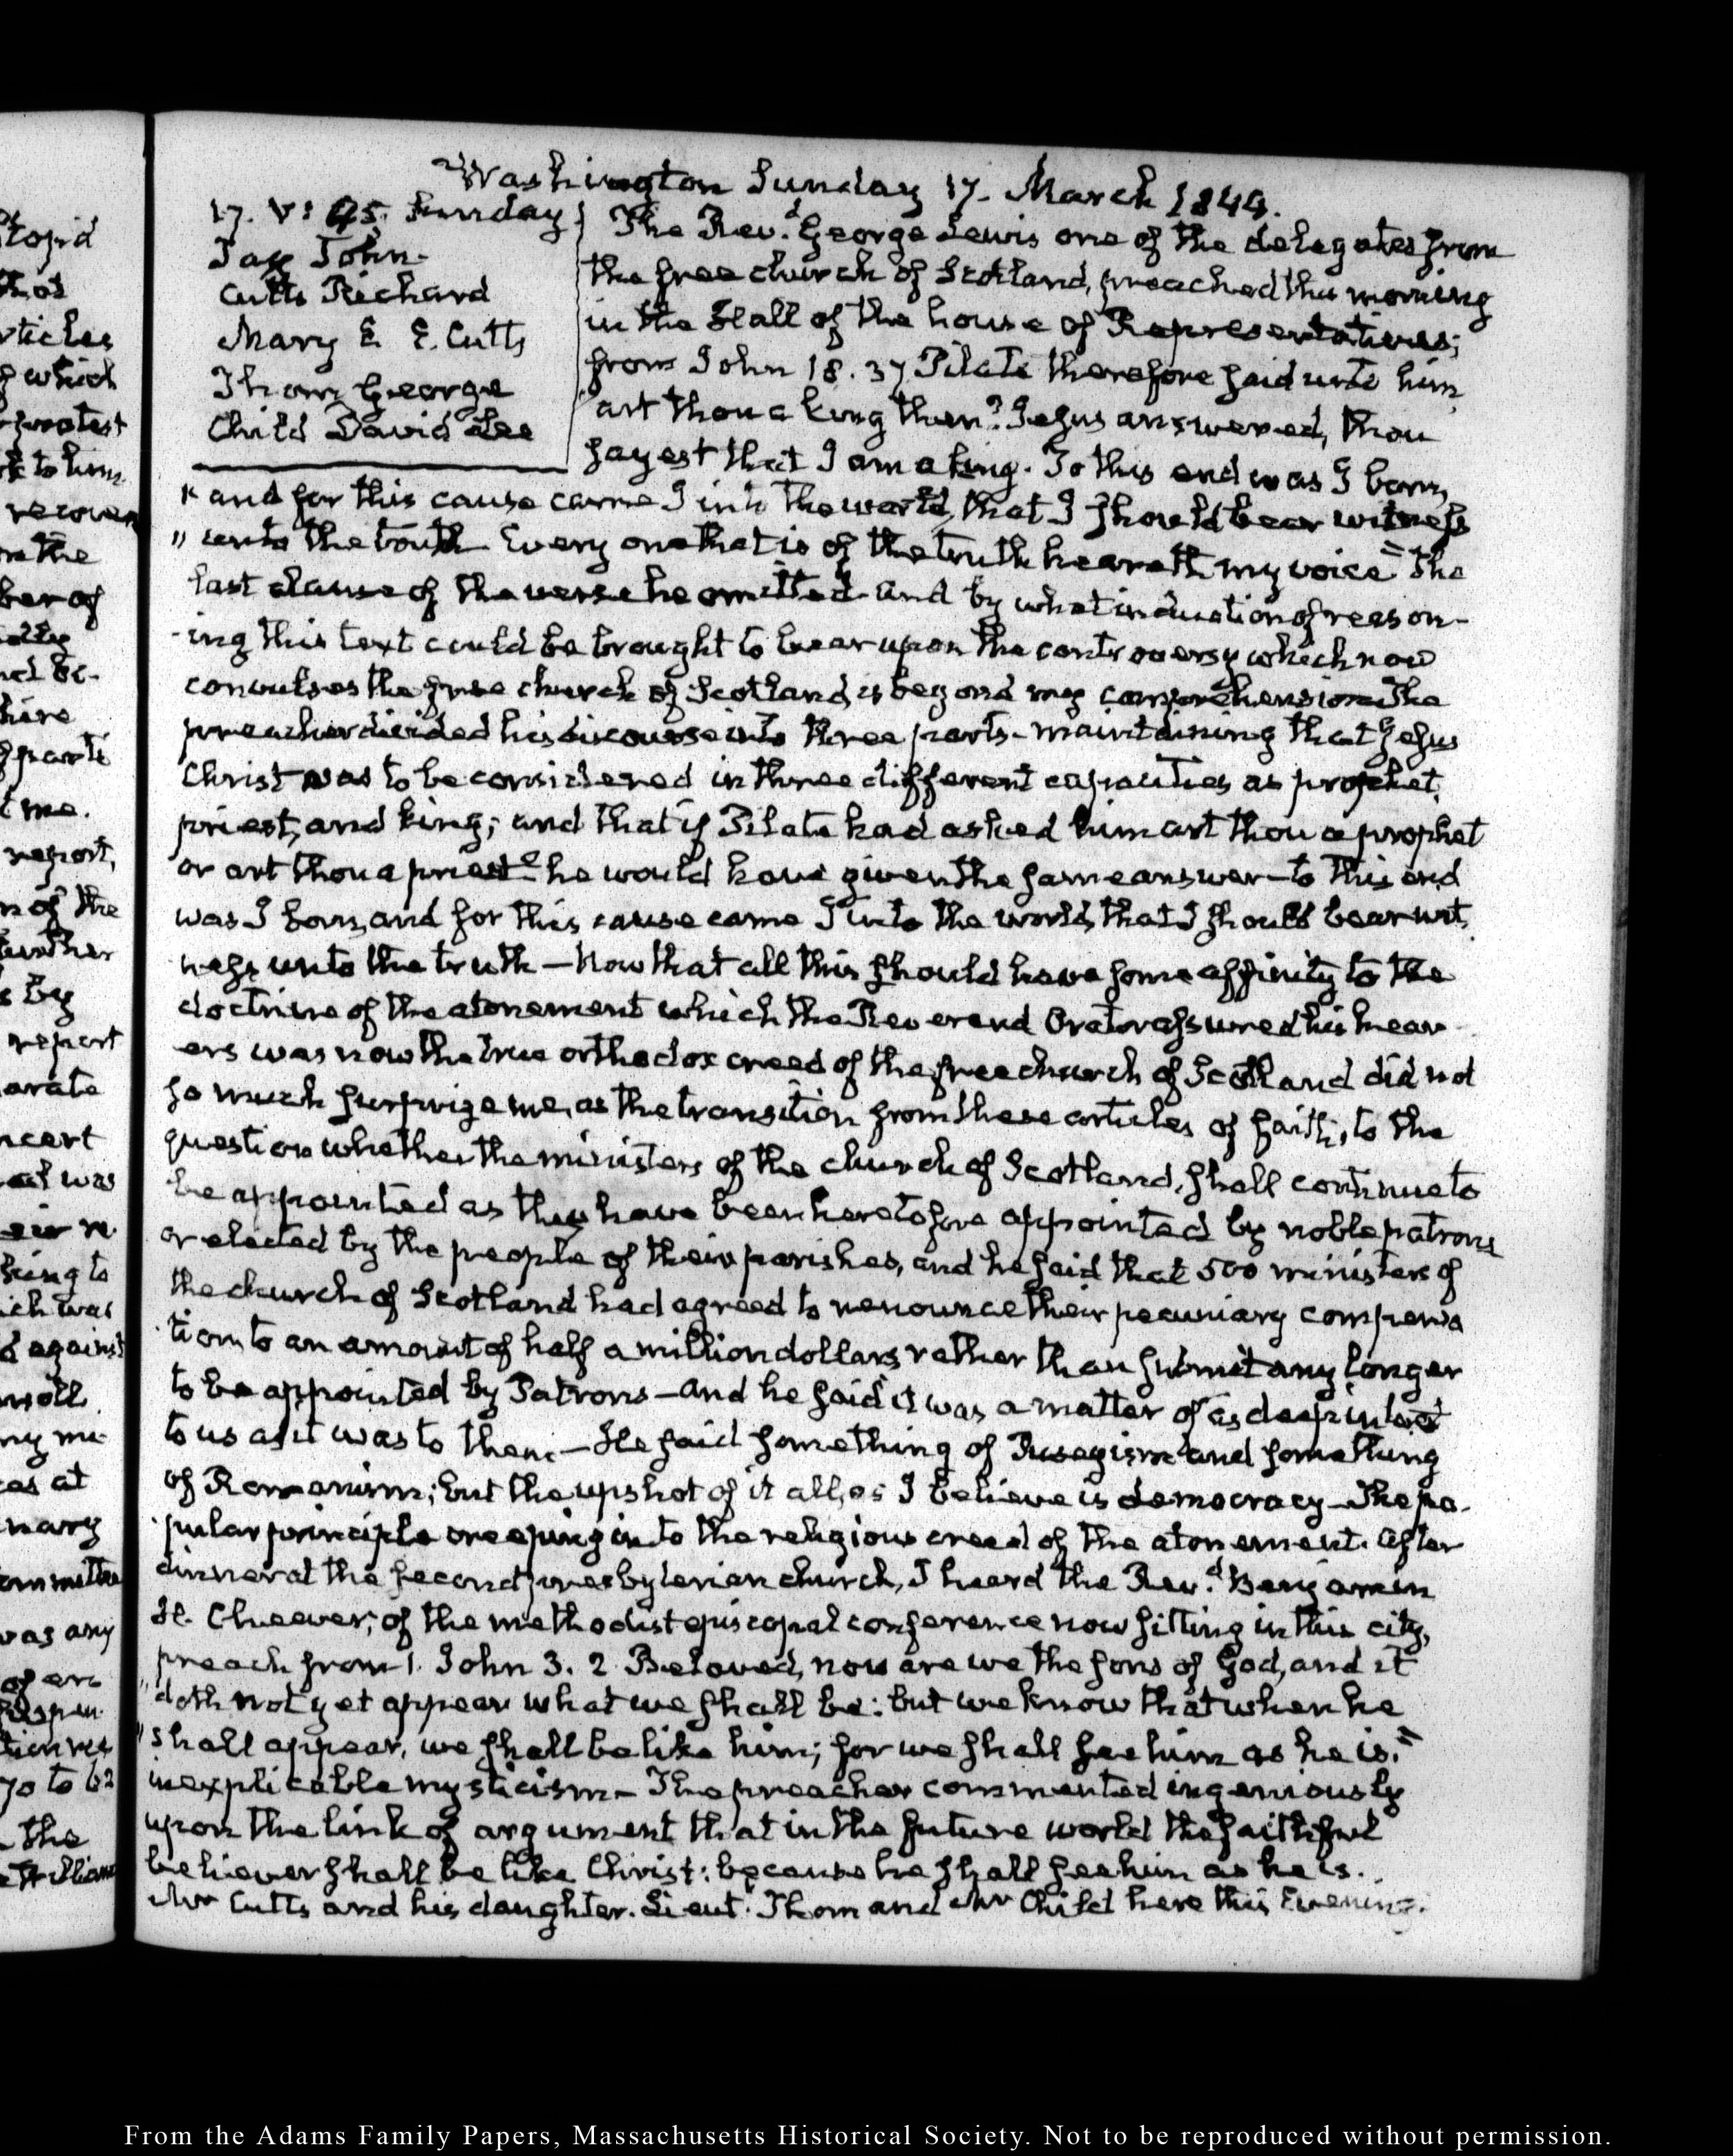 Washington Sunday 17. March 1844.
17. V: 45. Sunday
Jay John.
Cutts Richard
Mary E. E. Cutts
Thom George
Child David Lee
The Rev.d George Lewis one of the delegates from
the free church of Scotland, preached this morning
in the Hall of the house of Representatives;
from John 18. 37 Pilate therefore said unto him,
"art thou a king then? Jesus answered, thou
sayest that I am a king. To this end was I born,
" and for this cause came I into the world, that I should bear witness
" unto the truth. Every one that is of the truth heareth my voice" The
last clause of the verse he omitted and by what of reason-
-ing this text could be brought to bear upon the controversy which now
convulses the free church of Scotland, is beyond my comprehension. The
preacher divided his discourse into three parts - maintaining that Jesus
Christ was to be considered in three different capacities as prophet,
priest, and king; and that if Pilate had asked him art thou a prophet
or art thou a priest? he would have given the same answer - to this end
was I born, and for this cause came I into the world, that I should bear wit-
ness unto the truth - Now that all this should have some affinity to the
doctrine of the atonement which the Reverend Orator assured his hear-
ers was now the true orthodox creed of the free church of Scotland did not
so much surprize me, as the transition from these articles of faith, to the
question whether the ministers of the church of Scotland, shall continue to
be appointed as they have been heretofore appointed by noble patrons
or elected by the people of their parishes, and he said that 500 ministers of
the church of Scotland had agreed to renounce their pecuniary compensa
tion to an amount of half a million dollars rather than submit any longer
to be appointed by Patrons - and he said it was a matter of as deep interest
to us as it was to them. - He said something of Puseyism and something
of Romanism; but the upshot of it all, as I believe is democracy - The po-
pular principle creeping into the religious creed of the atonement. After
dinner at the second presbyterian church, I heard the Rev.d Benjamin
H. Cheever, of the methodist episcopal conference now sitting in this city,
preach from 1. John 3. 2. Beloved, now are we the sons of God, and it
" doth not yet appear what we shall be: but we know that when he
" shall appear, we shall be like him; for we shall see him as he is."
inexplicable mysticism - The preacher commented ingeniously
upon the link of argument that in the future world the faithful
believer shall be like Christ: because he shall see him as he is.
Mr Cutts and his daughter. Lieut. Thom and Mr Child here this Evening.
From the Adams Family Papers, Massachusetts Historical Society. Not to be reproduced without permission.